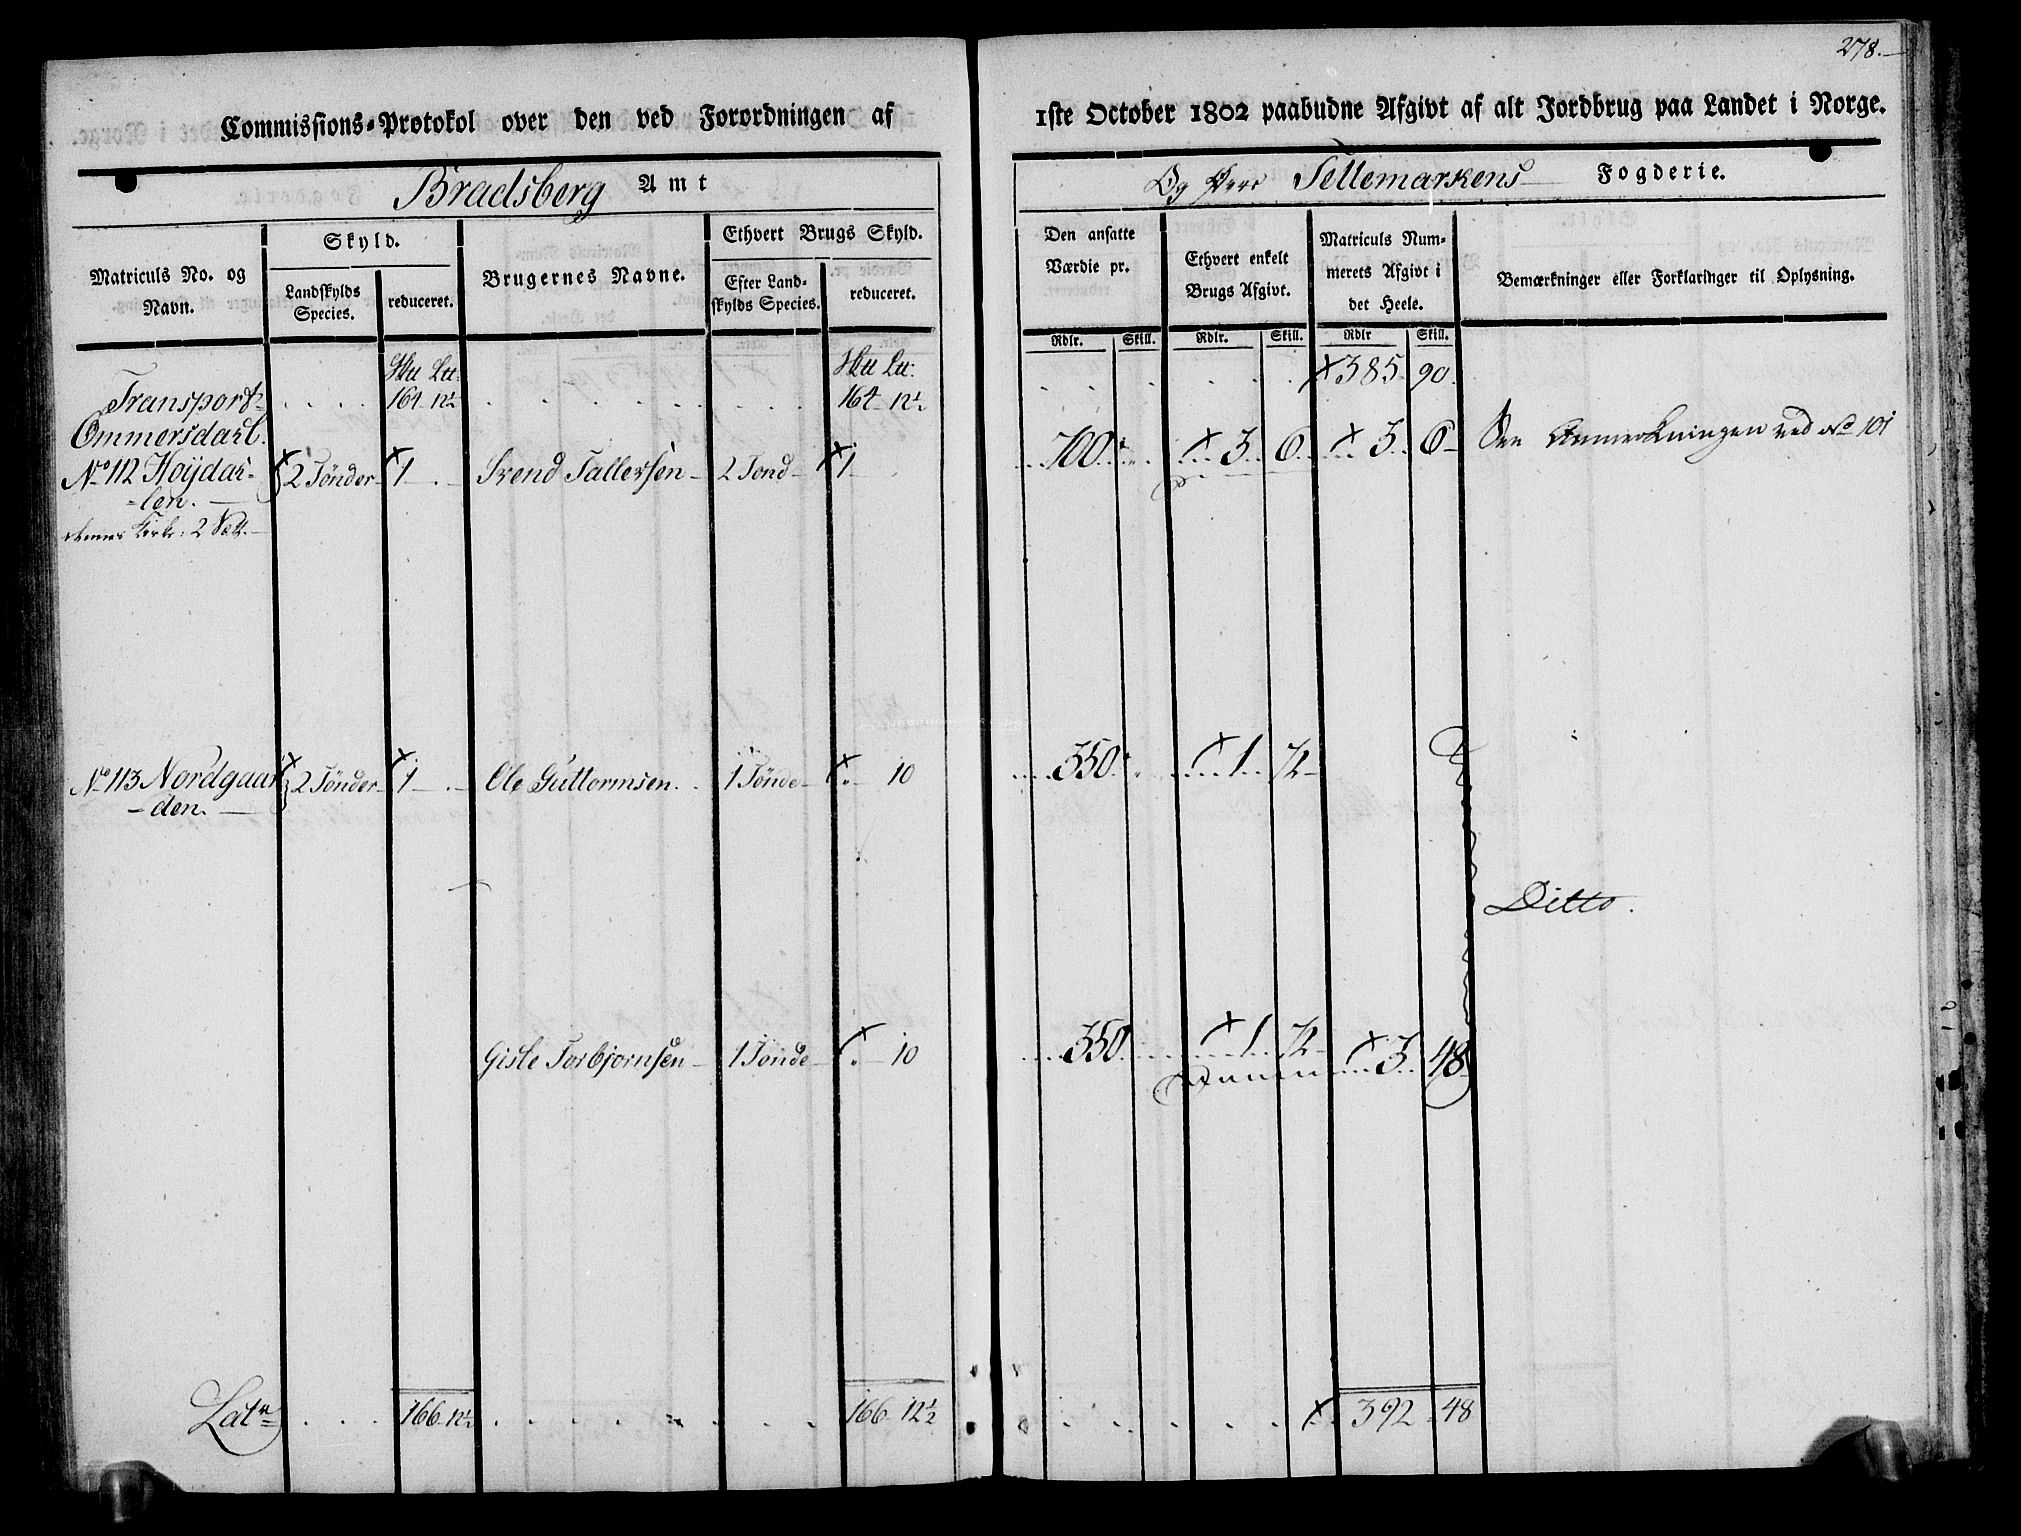 278.
Commissions-Protokol over den ved Forordningen af 1ste October 1802 paabudne Afgivt af alt Jordbrug paa Landet i Norge.
Bradsberg Amt
Og Tellemarkens Fogderie.
Matriculs No. og Navn.
Skyld.
Landskylds Species.
reduceret.
Brugernes Navne.
Ethvert Brugs Skyld.
Efter Landskylds Species.
reduceret.
Den ansatte Værdie pr.
Ethvert enkelt Brugs Afgivt.
Matriculs Nummerets Afgivt i det Heele.
Bemærkninger eller Forklaringer til Oplysning.
Rdlr. Skill. Rdlr. Skill. Rdlr Skill.
Transport 164 12½ 164 12½ 385 90.
Ommersdarl.
No 112 Höydar-len. 2 Tönder 1 Svend Tallersen 2 Tond 1 700 3 6 3 6 Anmerkningen ved No 101
No 113 Nordgaar-den. 2 Tönder 1 Ole Guttormsen 1 Tönde 10 350 1 72
Ditto.
Gisle Torbjornsen 1 Tönde 10 350 1 72 3 48
Lat 166 12½ 166 12½ 392 48